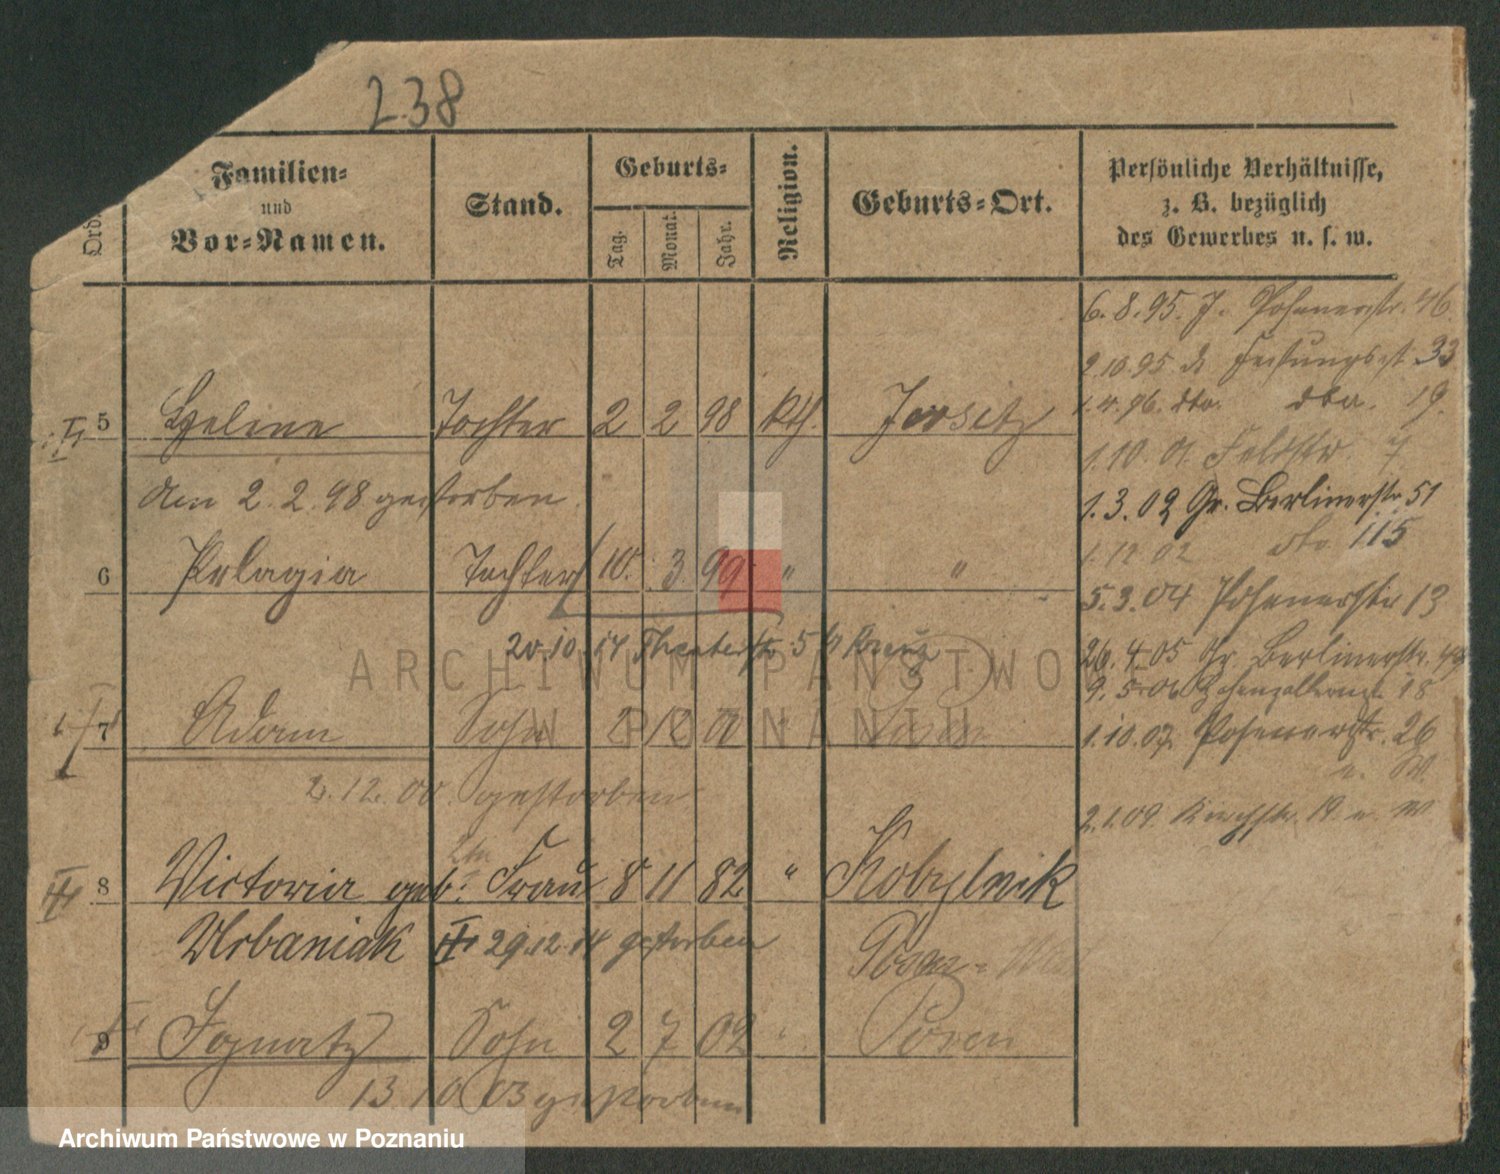 238
Ord.
Familien-
und
Vor-Namen.
Stand.
Geburts-
Tag.
Monat.
Jahr.
Religion.
Geburts-Ort.
Persönliche Verhältnisse,
z. B. bezüglich
des Gewerbes u. s. w.
6. 8. 95. J. Posenerstr. 46.
2.10.95 33
1.4.96. dto. dto. 19.
5 Helene Tochter 2 2 98 kth. Jersitz
1.10.01. Feldstr. 7
den 2. 2. 98 gestorben.
1.3.02 Gr. Berlinerstr. 51
1.12.02 dto. 115
6 Pelagia Tochter 10. 3. 99 " "
5.3.04 Posenerstr. 13
20.10.14 Theaterstr. 5
26.4.05 Gr. Berlinerstr.
9.5.06 Hohenzollernstr. 18
7 Adam Sohn
1.10.07. Posenerstr. 26
2.12.00 gestorben
2.1.09. Kirchstr. 19.
8 Victoria geb. Frau 8 11 82 " Kobylnik
Urbaniak 29.12.14 gestorben Posen-
9 Ignatz Sohn 2 7 02 " Posen
13.10.03 gestorben
ARCHIWUM PAŃSTWO
W POZNANIU
Archiwum Państwowe w Poznaniu